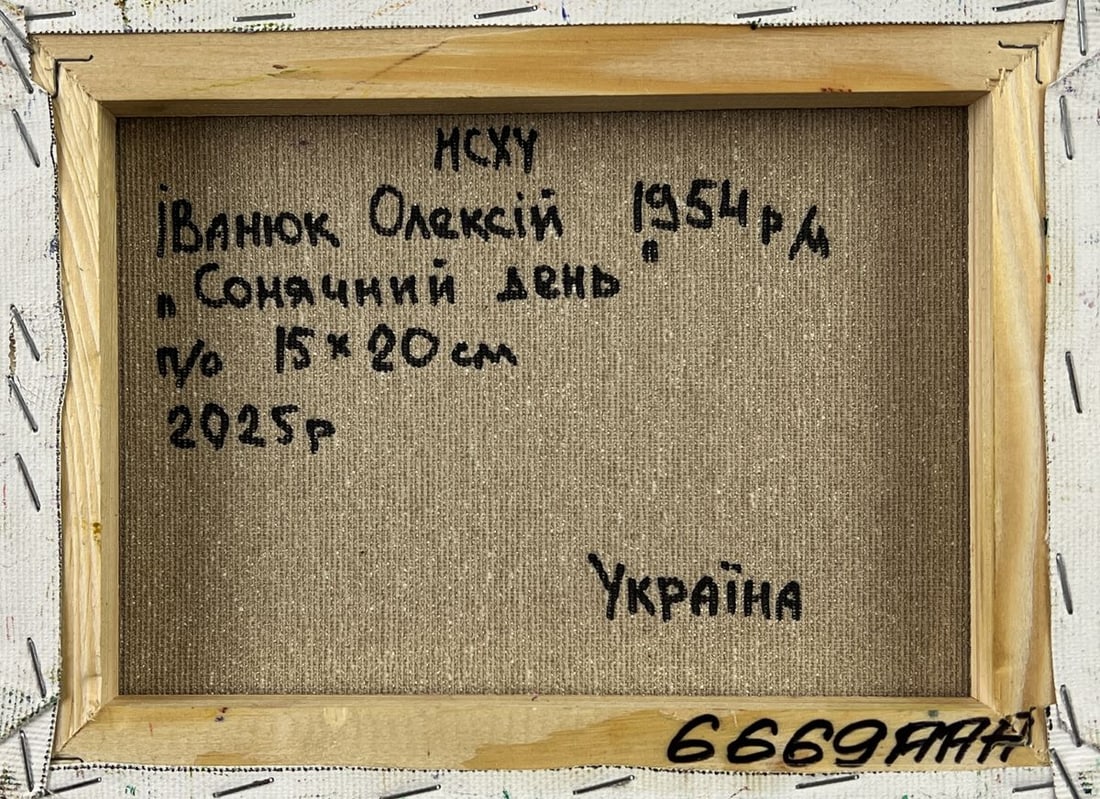 НСХУ
Іванюк Олексій 1954 р/н
„Сонячний день"
п/о 15 x 20 см
2025р
Україна
6669ААН